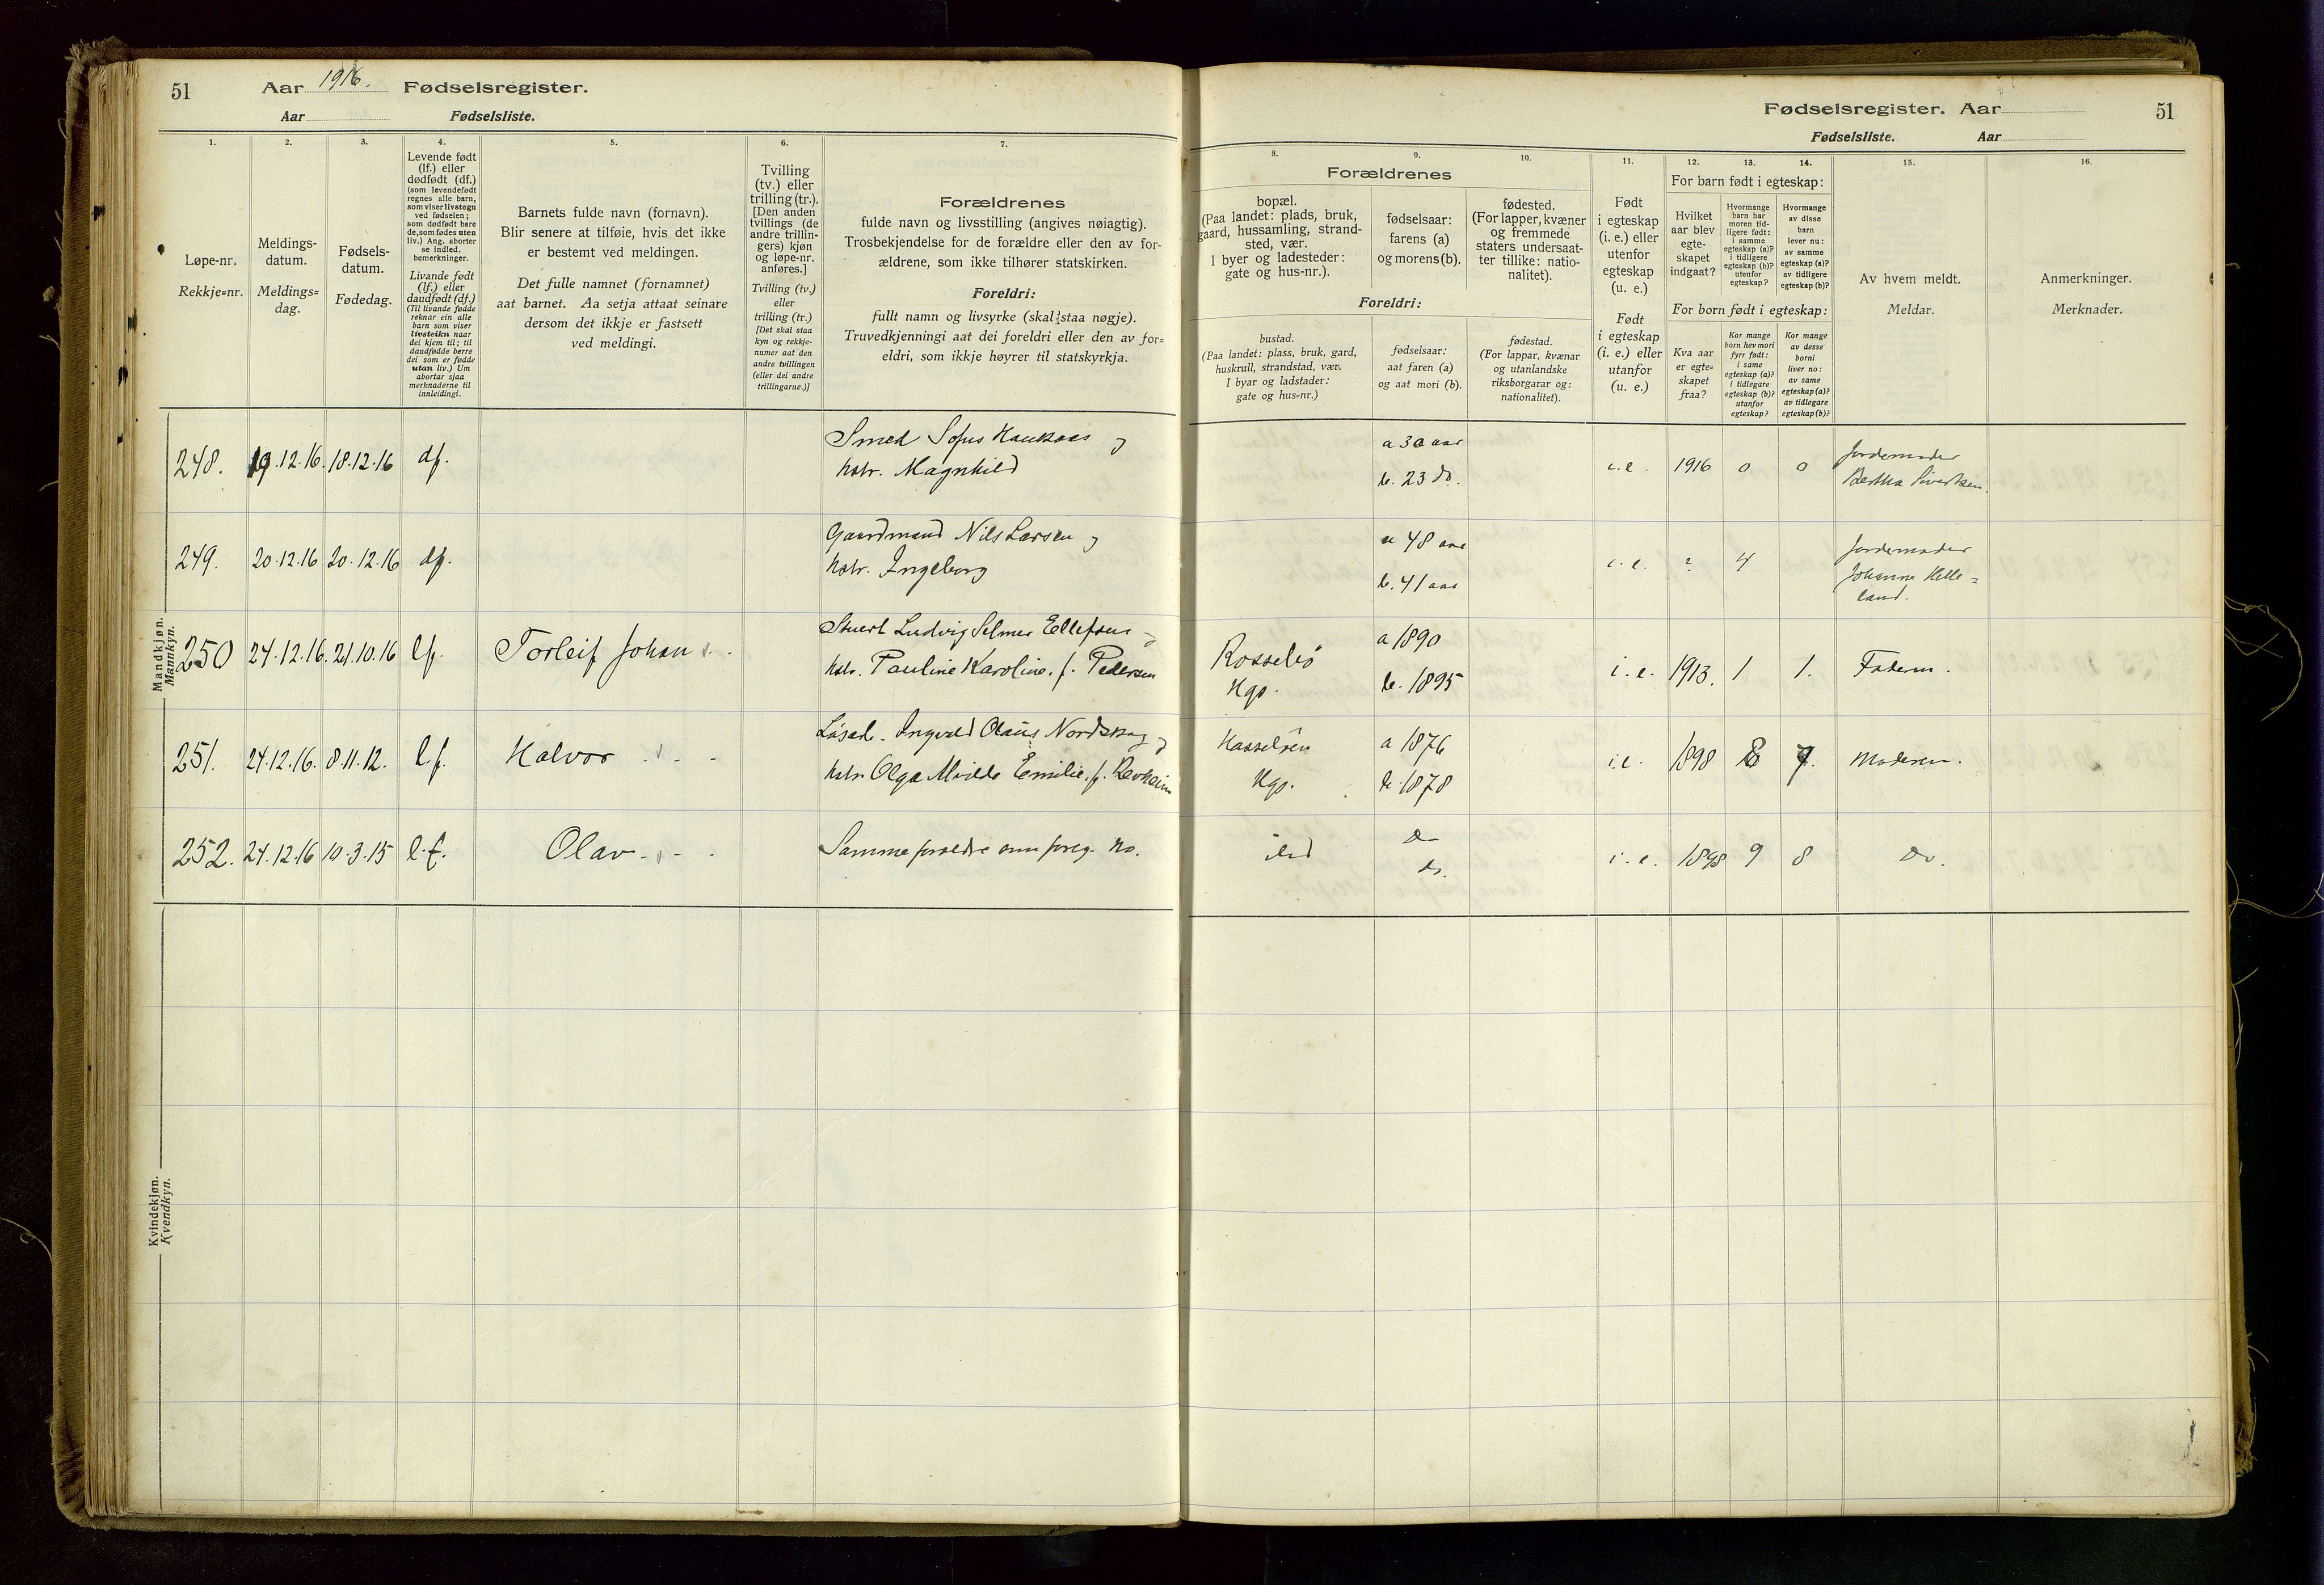 51 Aar 1916. Fødselsregister.
Aar Fødselsliste.
Fødselsregister. Aar 51
Fødselsliste. Aar
1.
Løpe-nr.
Rekkje=nr.
2.
Meldings-
datum.
Meldings=
dag.
3.
Fødsels-
datum.
Fødedag.
4.
Levende født
(lf.) eller
dødfødt (df.)
(som levendefødt
regnes alle barn,
som viser livstegn
ved fødselen;
som dødfødt bare
de, som fødes uten
liv.) Ang. aborter
se indled.
bemerkninger.
Livande født
(lf.) eller
daudfødt (df.)
(Til livande fødde
reknar ein alle
barn som viser
livsteikn naar
dei kjem til; til
daudfødde berre
dei som er fødde
utan liv.) Um
abortar sjaa
merknaderne til
innleidingi.
5.
Barnets fulde navn (fornavn).
Blir senere at tilføie, hvis det ikke
er bestemt ved meldingen.
Det fulle namnet (fornamnet)
aat barnet. Aa setja attaat seinare
dersom det ikkje er fastsett
ved meldingi.
6.
Tvilling
(tv.) eller
trilling (tr.).
[Den anden
tvillings (de
andre trillin-
gers) kjøn
og løpe-nr.
anføres.]
Tvilling (tv.)
eller
trilling (tr.)
[Det skal staa
kyn og rekkje-
numer aat den
andre tvillingen
(eller dei andre
trillingarne.)]
7.
Forældrenes
fulde navn og livsstilling (angives nøiagtig).
Trosbekjendelse for de forældre eller den av for-
ældrene, som ikke tilhører statskirken.
Foreldri:
fullt namn og livsyrke (skal staa nøgje).
Truvedkjenningi aat dei foreldri eller den av for=
eldri, som ikkje høyrer til statskyrkja.
Forældrenes
8.
bopæl.
(Paa landet: plads, bruk,
gaard, hussamling, strand-
sted, vær.
I byer og ladesteder:
gate og hus-nr.).
Foreldri:
bustad.
(Paa landet: plass, bruk, gard,
huskrull, strandstad, vær.
I byar og ladstader:
gate og hus=nr.)
9.
fødselsaar:
farens (a)
og morens (b).
fødselsaar:
aat faren (a)
og aat mori (b).
10.
fødested.
(For lapper, kvæner
og fremmede
staters undersaat-
ter tillike: natio-
nalitet).
fødestad.
(For lappar, kvænar
og utanlandske
riksborgarar og:
nationalitet).
11.
Født
i egteskap
(i. e.) eller
utenfor
egteskap
(u. e.)
Født
i egteskap
(i. e.) eller
utanfor
(u. e.)
For barn født i egteskap:
12.
Hvilket
aar blev
egte-
skapet
indgaat?
13.
Hvormange
barn har
moren tid-
ligere født:
i samme
egteskap (a)?
i tidligere
egteskap (b)?
utenfor
egteskap?
14.
Hvormange
av disse
barn
lever nu:
av samme
egteskap (a)?
av tidligere
egteskap (b)?
For born født i egteskap:
Kva aar
er egte=
skapet
fraa?
Kor mange
born hev mori
fyrr født:
i same
egteskap (a)?
i tidlegare
egteskap (b)?
utanfor
egteskap?
Kor mange
av desse
borni
liver no:
av same
egteskap (a)?
av tidlegare
egteskap (b)?
15.
Av hvem meldt.
Meldar.
16.
Anmerkninger.
Merknader.
Mandkjøn.
Mannkyn.
248. 19.12.16. 18.12.16 df. Smed Sofus Haukaas og a 30 aar i.e. 1916 0 0 Jordemoder
hstr. Magnhild b. 23 do. Bertha Sivertsen
249. 20.12.16 20.12.16 df. Gaardmand Nils Larsen og a 48 aar i.e. ? 4 Jordemoder
hstr. Ingeborg b. 41 aar Johanne Helle=
land.
250 24.12.16. 21.10.16 lf. Torleif Johan Stuert Ludvig Selmer Ellefsen og Rossebø a 1890 i.e. 1913. 1 1. Faderen.
hstr. Pauline Karoline. f. Pedersen Hgs. b. 1895
251. 24.12.16. 8.11.12. l.f. Halvor Løsarb. Ingvald Olaus Nordskog og Hasseløen a 1876 i.e. 1898 8 7. Moderen.
hstr. Olga Alvilde Emilie. f. Revheim Hgs. b. 1878
252. 24.12.16 10.3.15 l.f. Olav Samme foreldre som foreg. No. ibd do i.e. 1898 9 8 do.
do.
Kvindekjøn.
Kvendkyn.